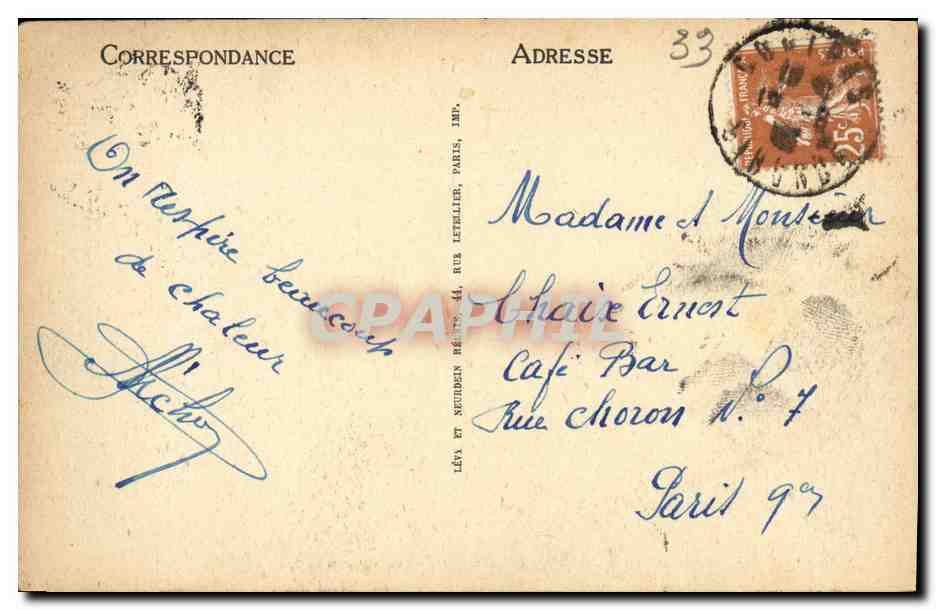 CORRESPONDANCE
ADRESSE
33
RÉPUBLIQUE FRANÇAISE
25c
On respire beaucoup
de chaleur
LÉVY ET NEURDEIN RÉUNIS, 44, RUE LETELLIER, PARIS, IMP.
Madame et Monsieur
Chaix Ernest
Café Bar
Rue Choron N° 7
Paris 9
CPAPHIL